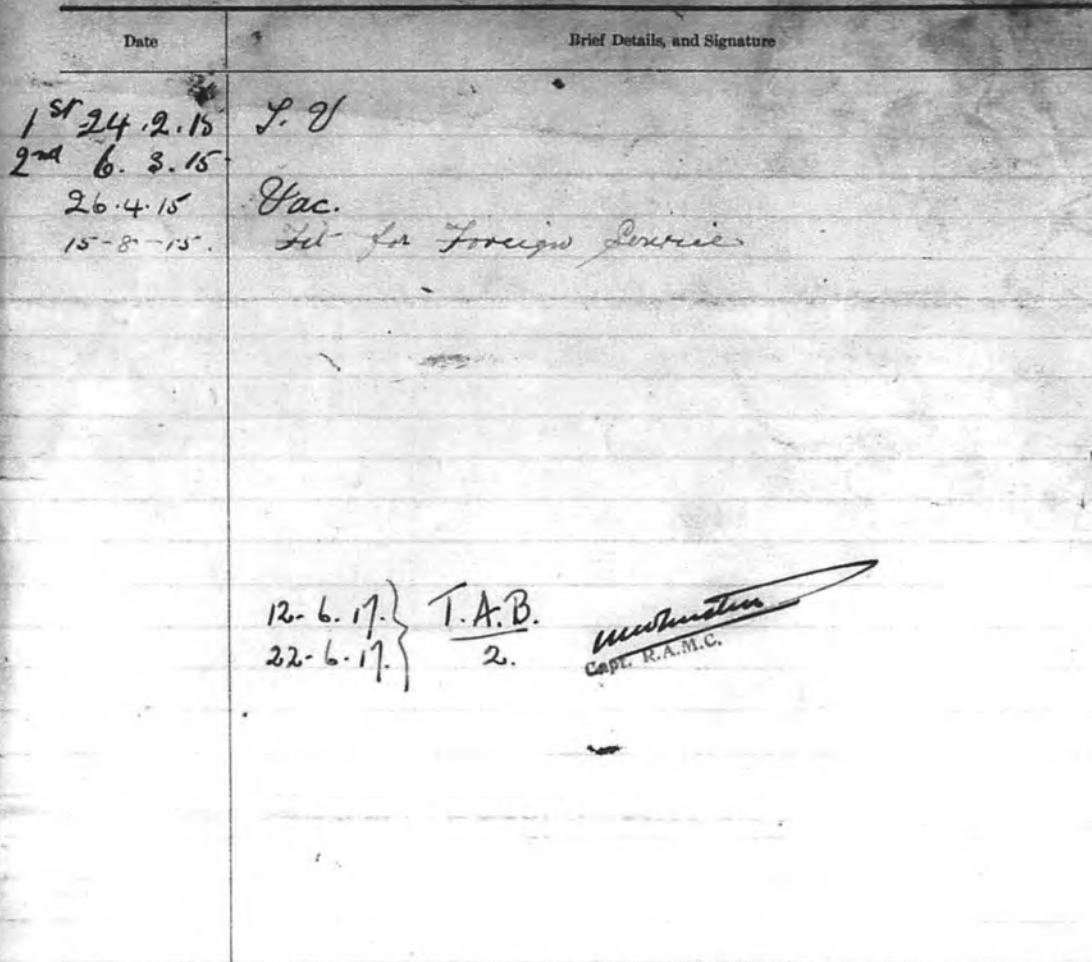 Date Brief Details, and Signature
1st 24.2.15 T. V
2nd 6.3.15
26.4.15 Vac.
15-8-15. Fit for Foreign Service
12-6.17. } T.A.B.
22-6-17. } 2.
Capt. R.A.M.C.